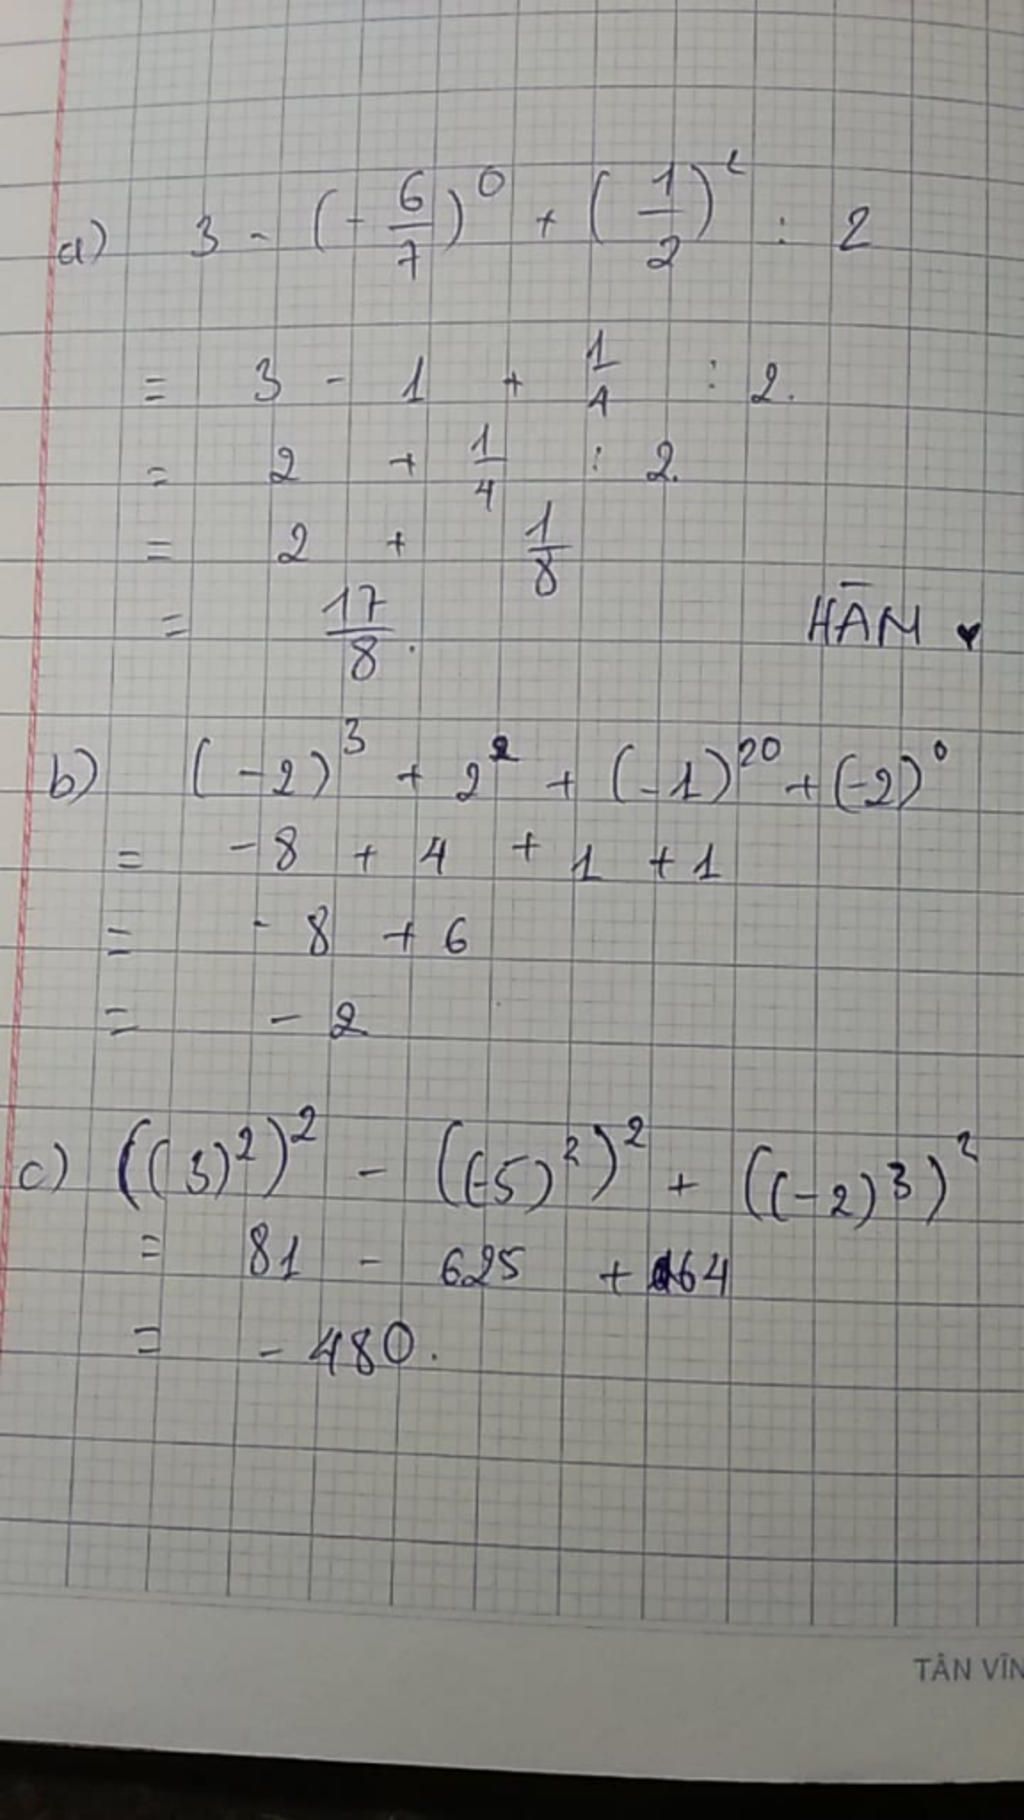 a) 3 - (-6/7)⁰ + (1/2)² : 2
= 3 - 1 + 1/4 : 2.
= 2 + 1/4 : 2.
= 2 + 1/8
= 17/8.
HÂM ♥
b) (-2)³ + 2² + (-1)²⁰ + (-2)⁰
= -8 + 4 + 1 + 1
= -8 + 6
= -2
c) ((3)²)² - ((-5)²)² + ((-2)³)²
= 81 - 625 + 64
= -480.
TÂN VĨN